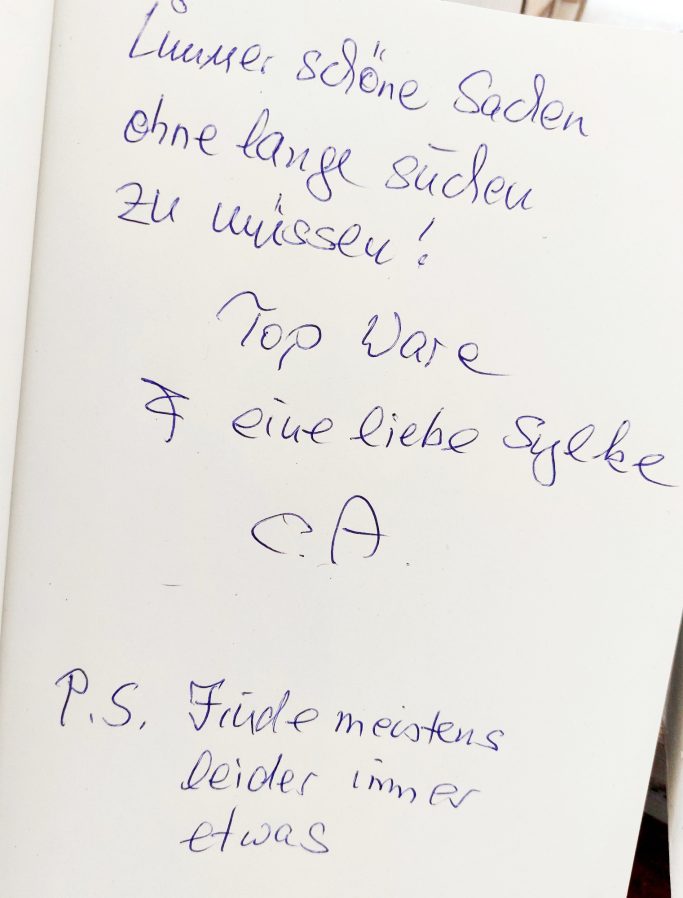 Immer schöne Sachen
ohne lange suchen
zu müssen!
Top Ware
& eine liebe Sylke
C.A.
P.S. Finde meistens
leider immer
etwas